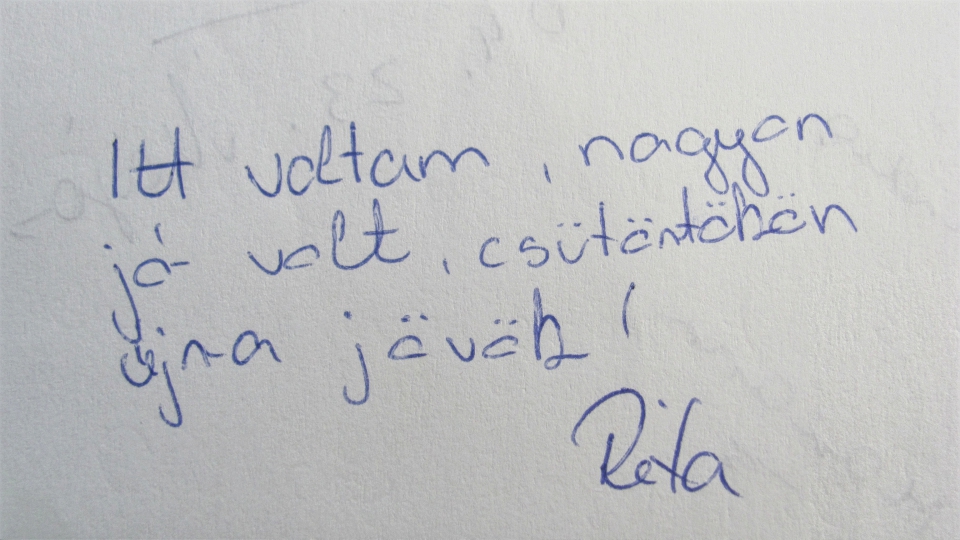 Itt voltam, nagyon
jó volt, csütörtökön
újra jövök!
Rita